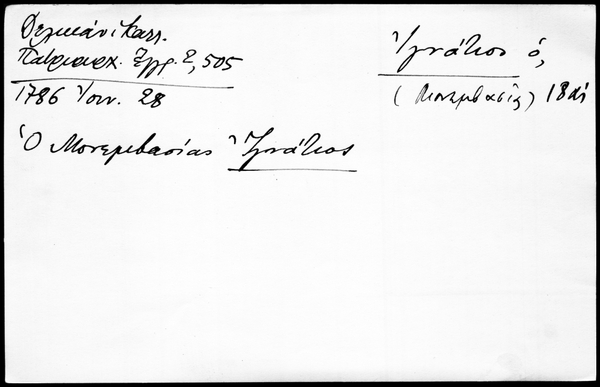 Δελικάνι Καλλ.
Πατριαρχ. Ἔγγρ. Γ, 505
1786 Ἰουν. 28
Ἰγνάτιος ὁ,
(Μονεμβασίας) 18 αἰ
Ὁ Μονεμβασίας Ἰγνάτιος